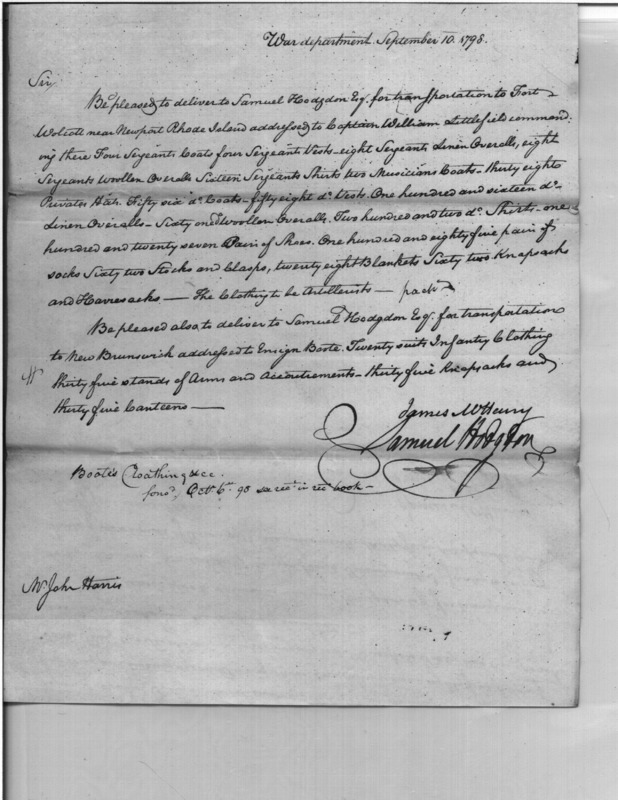 War department September 10. 1798.
Sir,
Be pleased to deliver to Samuel Hodgdon Esq. for transportation to Fort
Wolcott near Newport Rhode Island addressed to Captain William Littlefield command-
ing there Four Sergeants Coats four Sergeants Vests - eight Sergeants Linen Overalls, eight
Sergeants woollen Overalls Sixteen Sergeants Shirts two Musicians Coats - thirty eight
Privates Hats. Fifty six do. Coats - fifty eight do. Vests. One hundred and sixteen do.
Linen Overalls - Sixty one do. Woollen Overalls. Two hundred and two do. Shirts - one
hundred and twenty seven Pair of Shoes. One hundred and eighty five pair of
socks Sixty two Stocks and Clasps, twenty eight Blankets Sixty two Knapsacks
and Haversacks — The Clothing to be Artillerists — packd
Be pleased also to deliver to Samuel Hodgdon Esq. for transportation
to New Brunswick addressed to Ensign Boote. Twenty suits Infantry Clothing
thirty five stands of Arms and Accoutrements - thirty five Knapsacks and
thirty five Canteens —
James McHenry
Samuel Hodgdon
Boote's Cloathing &cc.
Octr. 6th. 98 in rect book -
Mr. John Harris